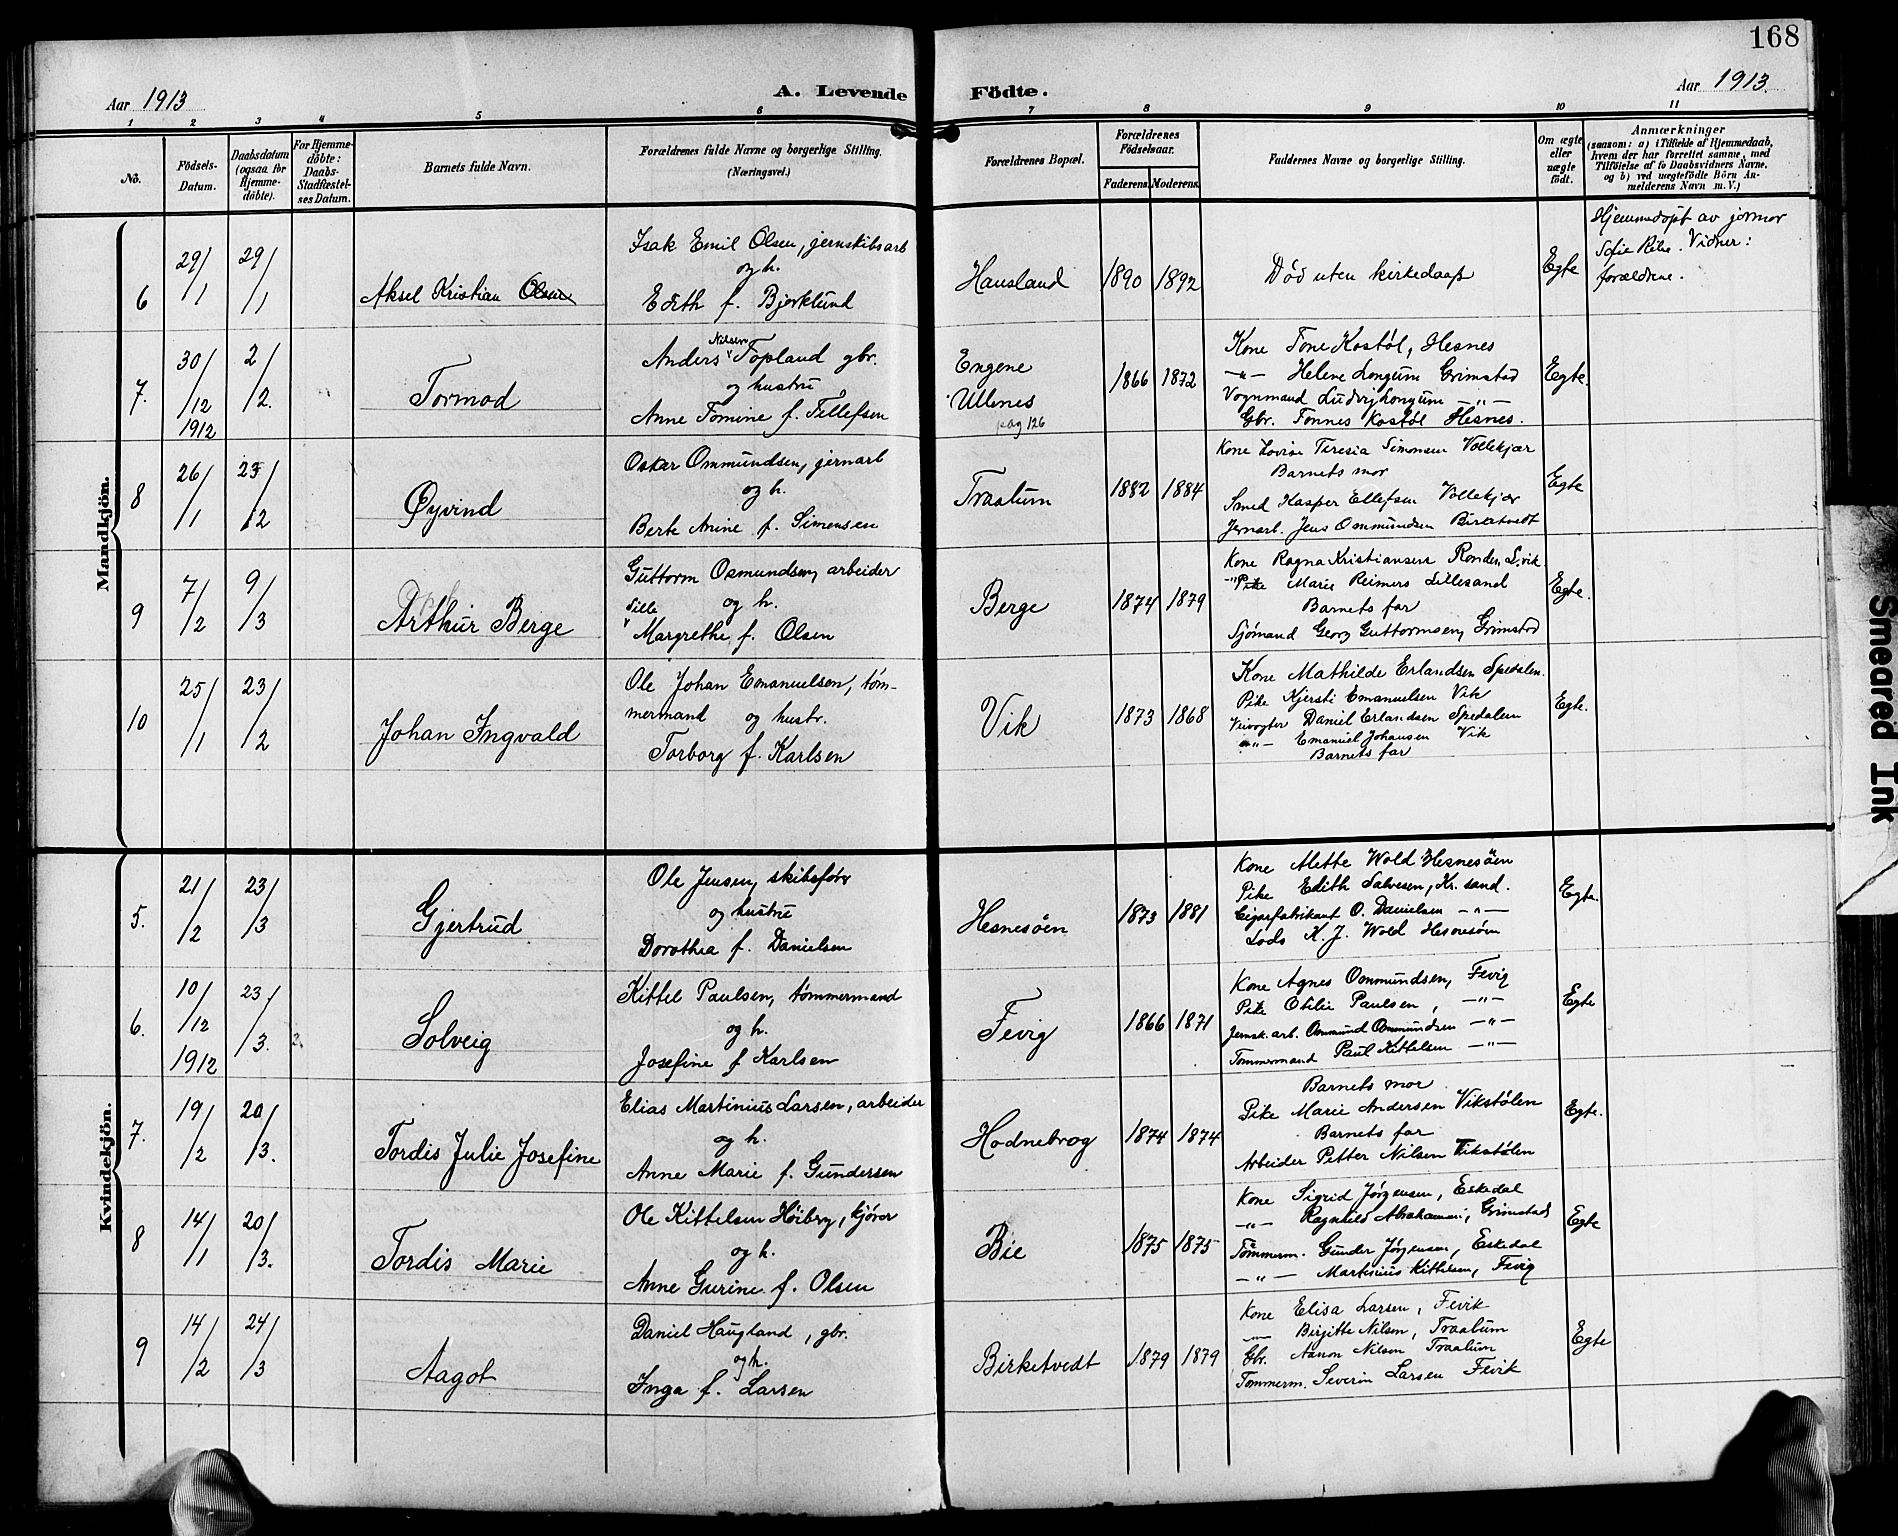 168
Aar 1913
A. Levende Födte.
Aar 1913.
1 2 3 4 5 6 7 8 9 10 11
No.
Födsels-Datum.
Daabsdatum (ogsaa for Hjemme-döbte).
For Hjemme-döbte: Daabs-Stadfæstel-ses Datum.
Barnets fulde Navn.
Forældrenes fulde Navne og borgerlige Stilling.
(Næringsvei.)
Forældrenes Bopæl.
Forældrenes Födselsaar.
Faderens. Moderens.
Faddernes Navne og borgerlige Stilling.
Om ægte eller uægte födt.
Anmærkninger
(saasom: a) i Tilfælde af Hjemmedaab,
hvem der har forrettet samme, med
Tilföielse af to Daabsvidners Navne,
og b) ved uægtefödte Börn An-
melderens Navn m. V.)
Mandkjön.
6
29/1
29/1
Aksel Kristian Olsen
Isak Emil Olsen, jernskibsarb
og h.
Edith f. Bjorklund
Hausland
1890 1892
Død uten kirkedaap
Egte
Hjemmedøpt av jormor
Sofie Ribe. Vidner:
forældrene.
7.
30/12
1912
2/2.
Tormod
Nilsen
Anders Topland gbr.
og hustru
Anne Tomine f. Tellefsen
Engene
Ullenes
pag 126
1866 1872
Kone Tone Kostøl, Hesnes
—"— Helene Longum Grimstad
Vognmand Ludvig Longum —"—
Gbr. Tønnes Kostøl Hesnes.
Egte.
8
26/1
23/2
Øyvind
Oskar Ommundsen, jernarb
og h.
Berte Anine f. Simensen
Traalum
1882 1884
Kone Lovise Teresia Simonsen Vollekjær
Barnets mor
Smed Kasper Ellefsen Vollekjær
Jernarb. Jens Ommundsen Birketvedt
Egte
9
7/2
9/3
Arthur Berge
Guttorm Osmundsen, arbeider
Sille og h.
Margrethe f. Olsen
Berge
1874 1879
Kone Ragna Kristiansen Ronden, Lvik
Pike Marie Reimers Lillesand
Barnets far
Sjømand Georg Guttormsen, Grimstad
Egte.
10
25/1
23/2
Johan Ingvald
Ole Johan Emanuelsen, tøm-
mermand og hustr.
Torborg f. Karlsen
Vik
1873 1868
Kone Mathilde Erlandsen Spedalen.
Pike Kjersti Emanuelsen Vik
Veivogter Daniel Erlandsen Spedalen
—"— Emanuel Johansen Vik
Barnets far
Egte.
Kvindekjön.
5.
21/2
23/3
Gjertrud
Ole Jensen, skibsfør
og hustru
Dorothea f. Danielsen
Hesnesøen
1873 1881
Kone Alette Wold Hesnesöen
Pike Edith Salvesen, Kr. sand.
Cigarfabrikant O. Danielsen —"—
Lods K. J. Wold Hesnesöen
Egte.
6.
10/12
1912
23/3.
Solveig
Kittel Paulsen, tømmermand
og h.
Josefine f Karlsen
Fevig
1866 1871
Kone Agnes Ommundsen, Fevig
Pike Otilie Paulsen, —"—
Jernsk. arb. Ommund Ommundsen —"—
Tømmermand Paul Kittelsen —"—
Egte
7.
19/2
20/3.
Tordis Julie Josefine
Elias Martinius Larsen, arbeider
og h.
Anne Marie f. Gundersen
Hodnebrog
1874 1874
Barnets mor
Pike Marie Andersen Vikstølen
Barnets far
Arbeider Petter Nilsen Vikstølen
Egte.
8
14/1
20/3.
Tordis Marie
Ole Kittelsen Höiberg, kjører
og h.
Anne Gurine f. Olsen
Bie
1875 1875
Kone Sigrid Jørgensen, Eskedal
—"— Ragnhild Abrahamsen, Grimstad
Tömmerm. Gunder Jørgensen, Eskedal
—"— Martinius Kittilsen, Fevig
Egte
9
14/2
24/3
Aagot
Daniel Haugland, gbr.
og h.
Inga f. Larsen
Birketvedt
1879 1879
Kone Elisa Larsen, Fevik
—"— Birgitte Nilsen, Traalum
Gbr. Aanon Nilsen Traalum
Tømmerm. Severin Larsen Fevik
Egte
Smeared Ink